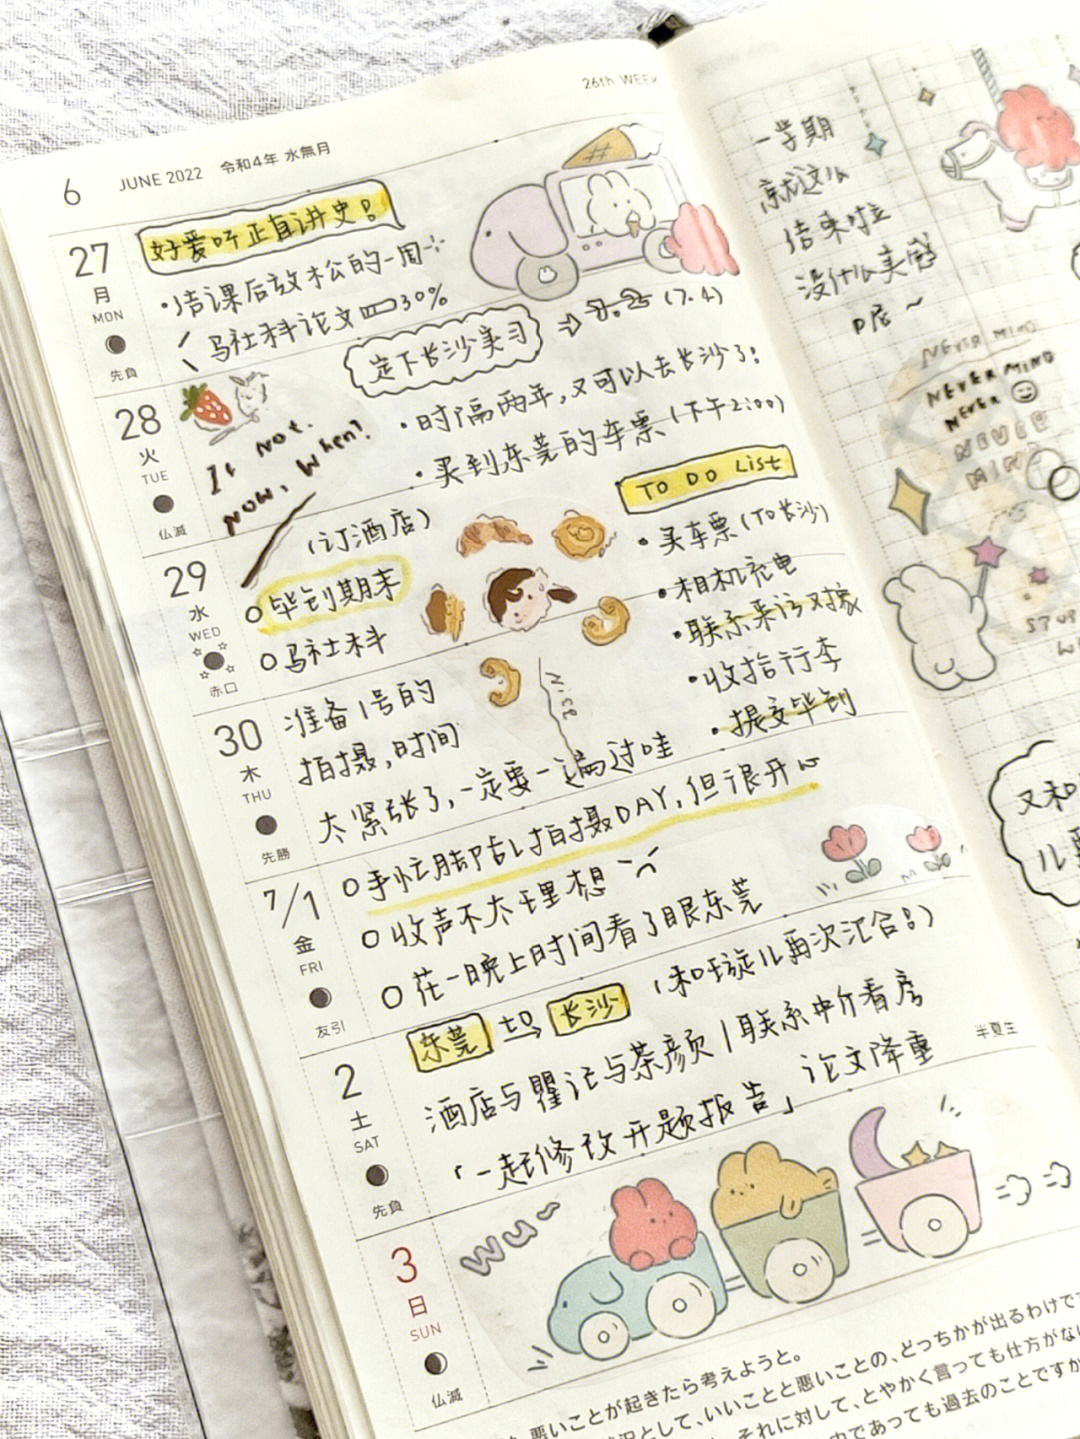 26th WEEK
6 JUNE 2022 令和4年 水無月
27 月 MON 先負
好爱听正直讲史!
·结课后放松的一周
马社科论文 30%
定下长沙实习 (7.4)
28 火 TUE 仏滅
If not.
now, when?
·时隔两年,又可以去长沙了!
·买到东莞的车票(下午2:00)
29 水 WED 赤口
(订酒店)
毕制期末
马社科
TO DO List
·买车票(TO长沙)
·相机充电
·联系采访对象
·收拾行李
·提交毕制
Nice
30 木 THU 先勝
准备1号的
拍摄,时间
太紧张了,一定要一遍过哇
7/1 金 FRI 友引
手忙脚乱拍摄DAY,但很开心
收声不太理想
花一晚上时间看了眼东莞
2 土 SAT 先負
东莞 to 长沙 (和璇儿再次汇合!)
酒店与瞿记与茶颜 | 联系中介看房
半夏生
「一起修改开题报告」 论文降重
3 日 SUN 仏滅
wu~
悪いことが起きたら考えようと。
として、いいことと悪いことの、どっちかが出るわけで
それに対して、とやかく言っても仕方がな
であっても過去のことですか
一学期
就这么
结束啦
没什么实感
呢~
NEVER MIND
NEVER MIND
NEVER
NEVER
MIND
又和
儿